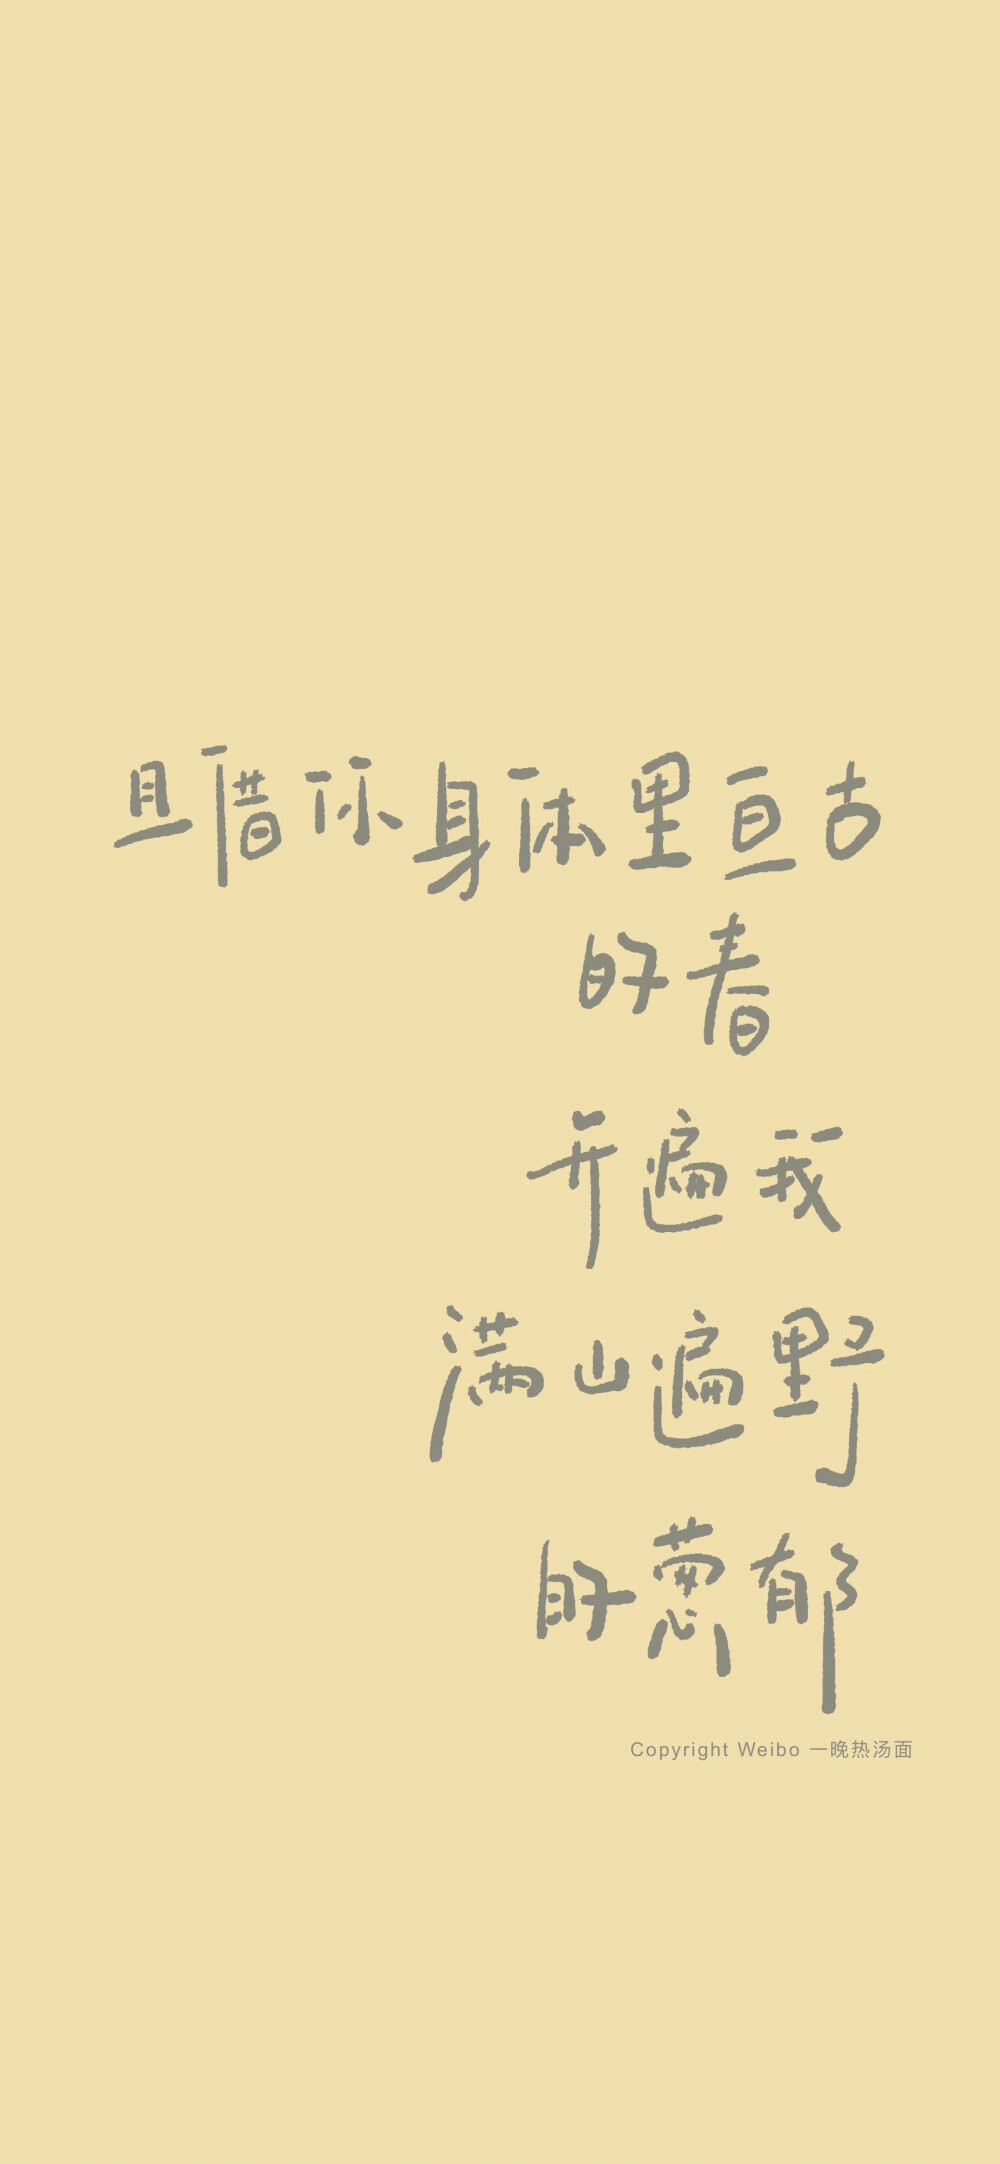 且借你身体里亘古
的春
开遍我
满山遍野
的葱郁
Copyright Weibo 一晚热汤面